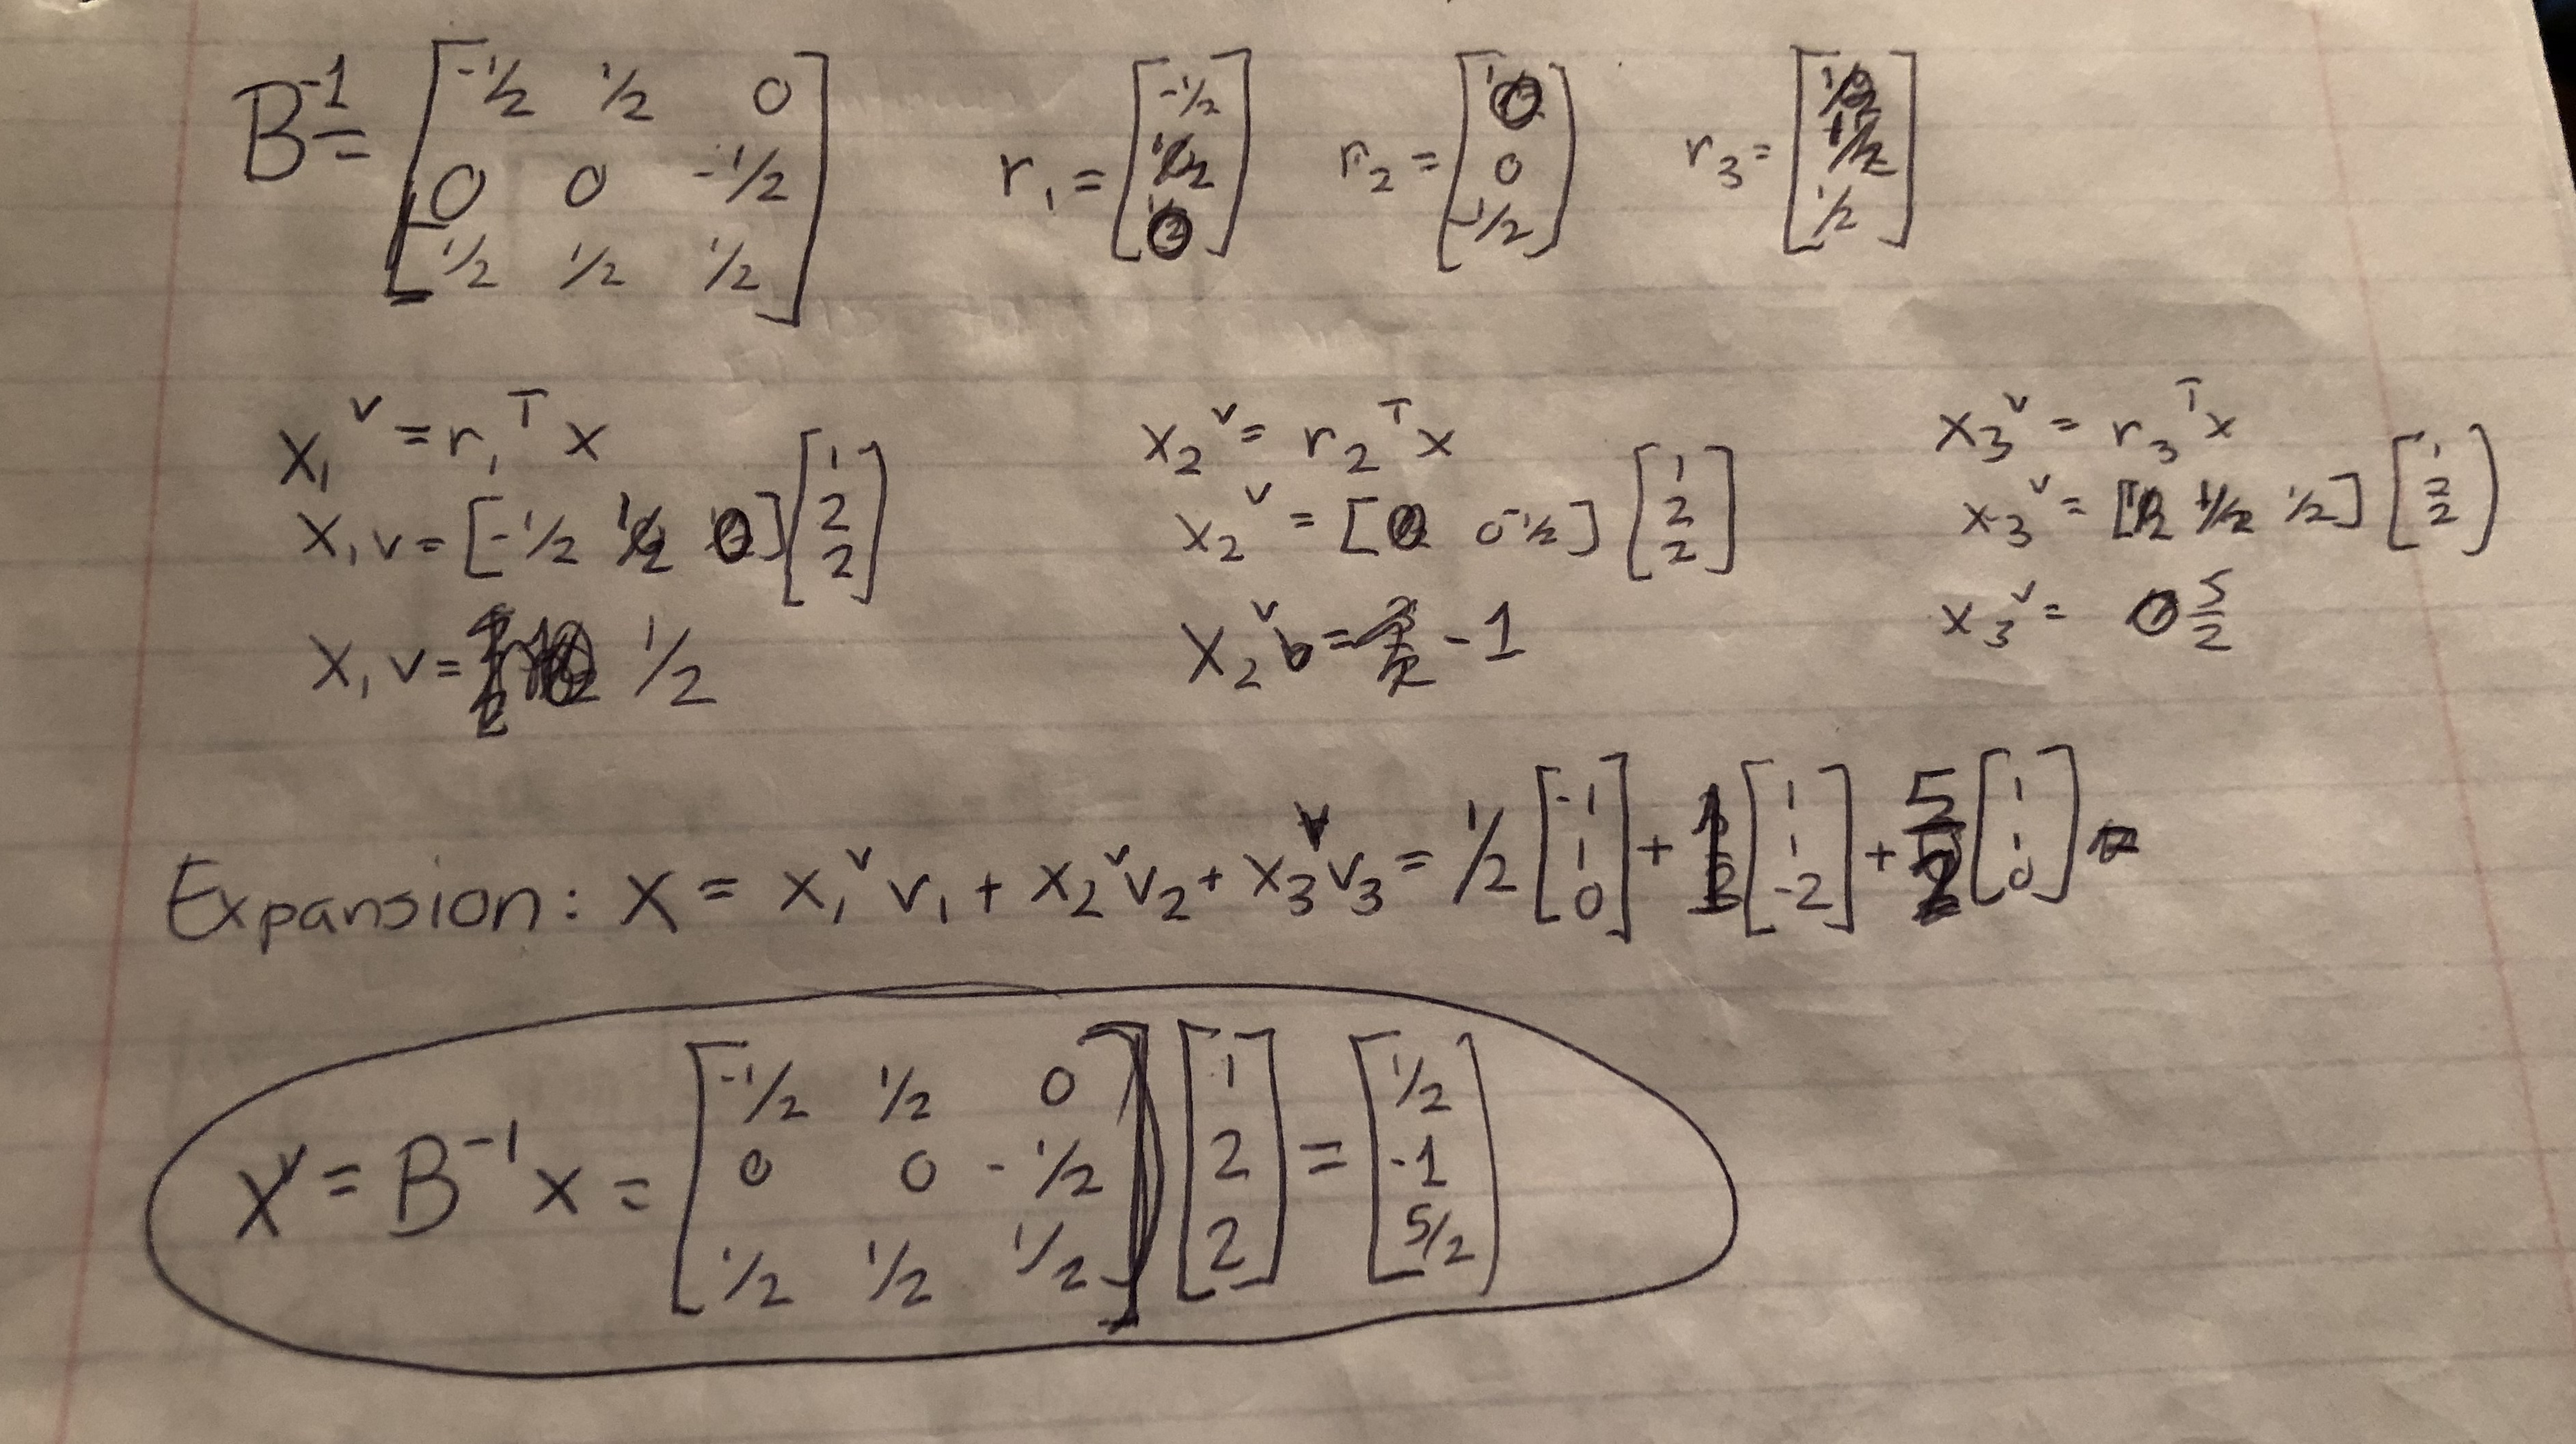 B⁻¹ = [-1/2 1/2 0; 0 0 -1/2; 1/2 1/2 1/2] r₁ = [-1/2; 1/2; 0] r₂ = [0; 0; -1/2] r₃ = [1/2; 1/2; 1/2]
x₁ᵛ = r₁ᵀ x x₂ᵛ = r₂ᵀ x x₃ᵛ = r₃ᵀ x
x₁v = [-1/2 1/2 0] [1; 2; 2] x₂ᵛ = [0 0 -1/2] [1; 2; 2] x₃ᵛ = [1/2 1/2 1/2] [1; 2; 2]
x₁v = 1/2 x₂ᵛb = -1 x₃ᵛ = 5/2
Expansion: x = x₁ᵛv₁ + x₂ᵛv₂ + x₃ᵛv₃ = 1/2 [-1; 1; 0] + 1 [1; 1; -2] + 5/2 [1; 1; 0]
xᵛ = B⁻¹x = [-1/2 1/2 0; 0 0 -1/2; 1/2 1/2 1/2] [1; 2; 2] = [1/2; -1; 5/2]